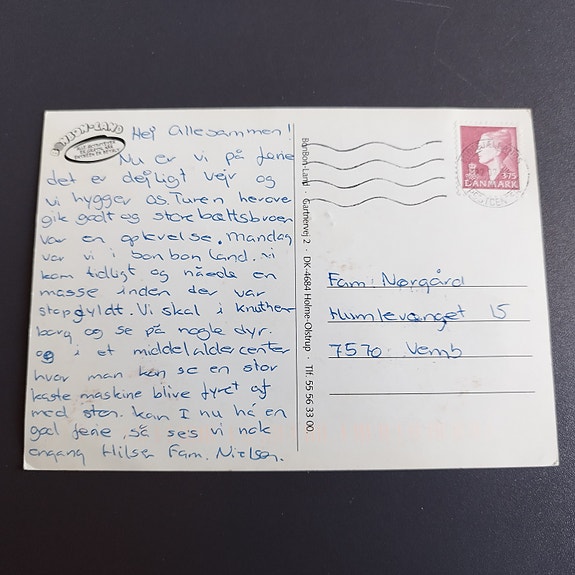 BONBON-LAND
Hej allesammen!!
Nu er vi på ferie
det er dejligt vejr og
vi hygger os. Turen herove
gik godt og storebæltsbroen
var en oplevelse. Mandag
var vi i bonbonland. vi
kom tidligt og nåede en
masse inden der var
stopfyldt. Vi skal i knuthen
borg og se på nogle dyr.
og i et middelaldercenter
hvor man kan se en stor
kaste maskine blive fyret af
med sten. kan I nu há en
god ferie, så ses vi nok
engang Hilsen Fam. Nielsen.
BonBon-Land · Gartnervej 2 · DK-4684 Holme-Olstrup · Tlf. 55 56 33 00
3.75
DANMARK
Fam: Nørgård
Humlevænget 15
7570 Vemb